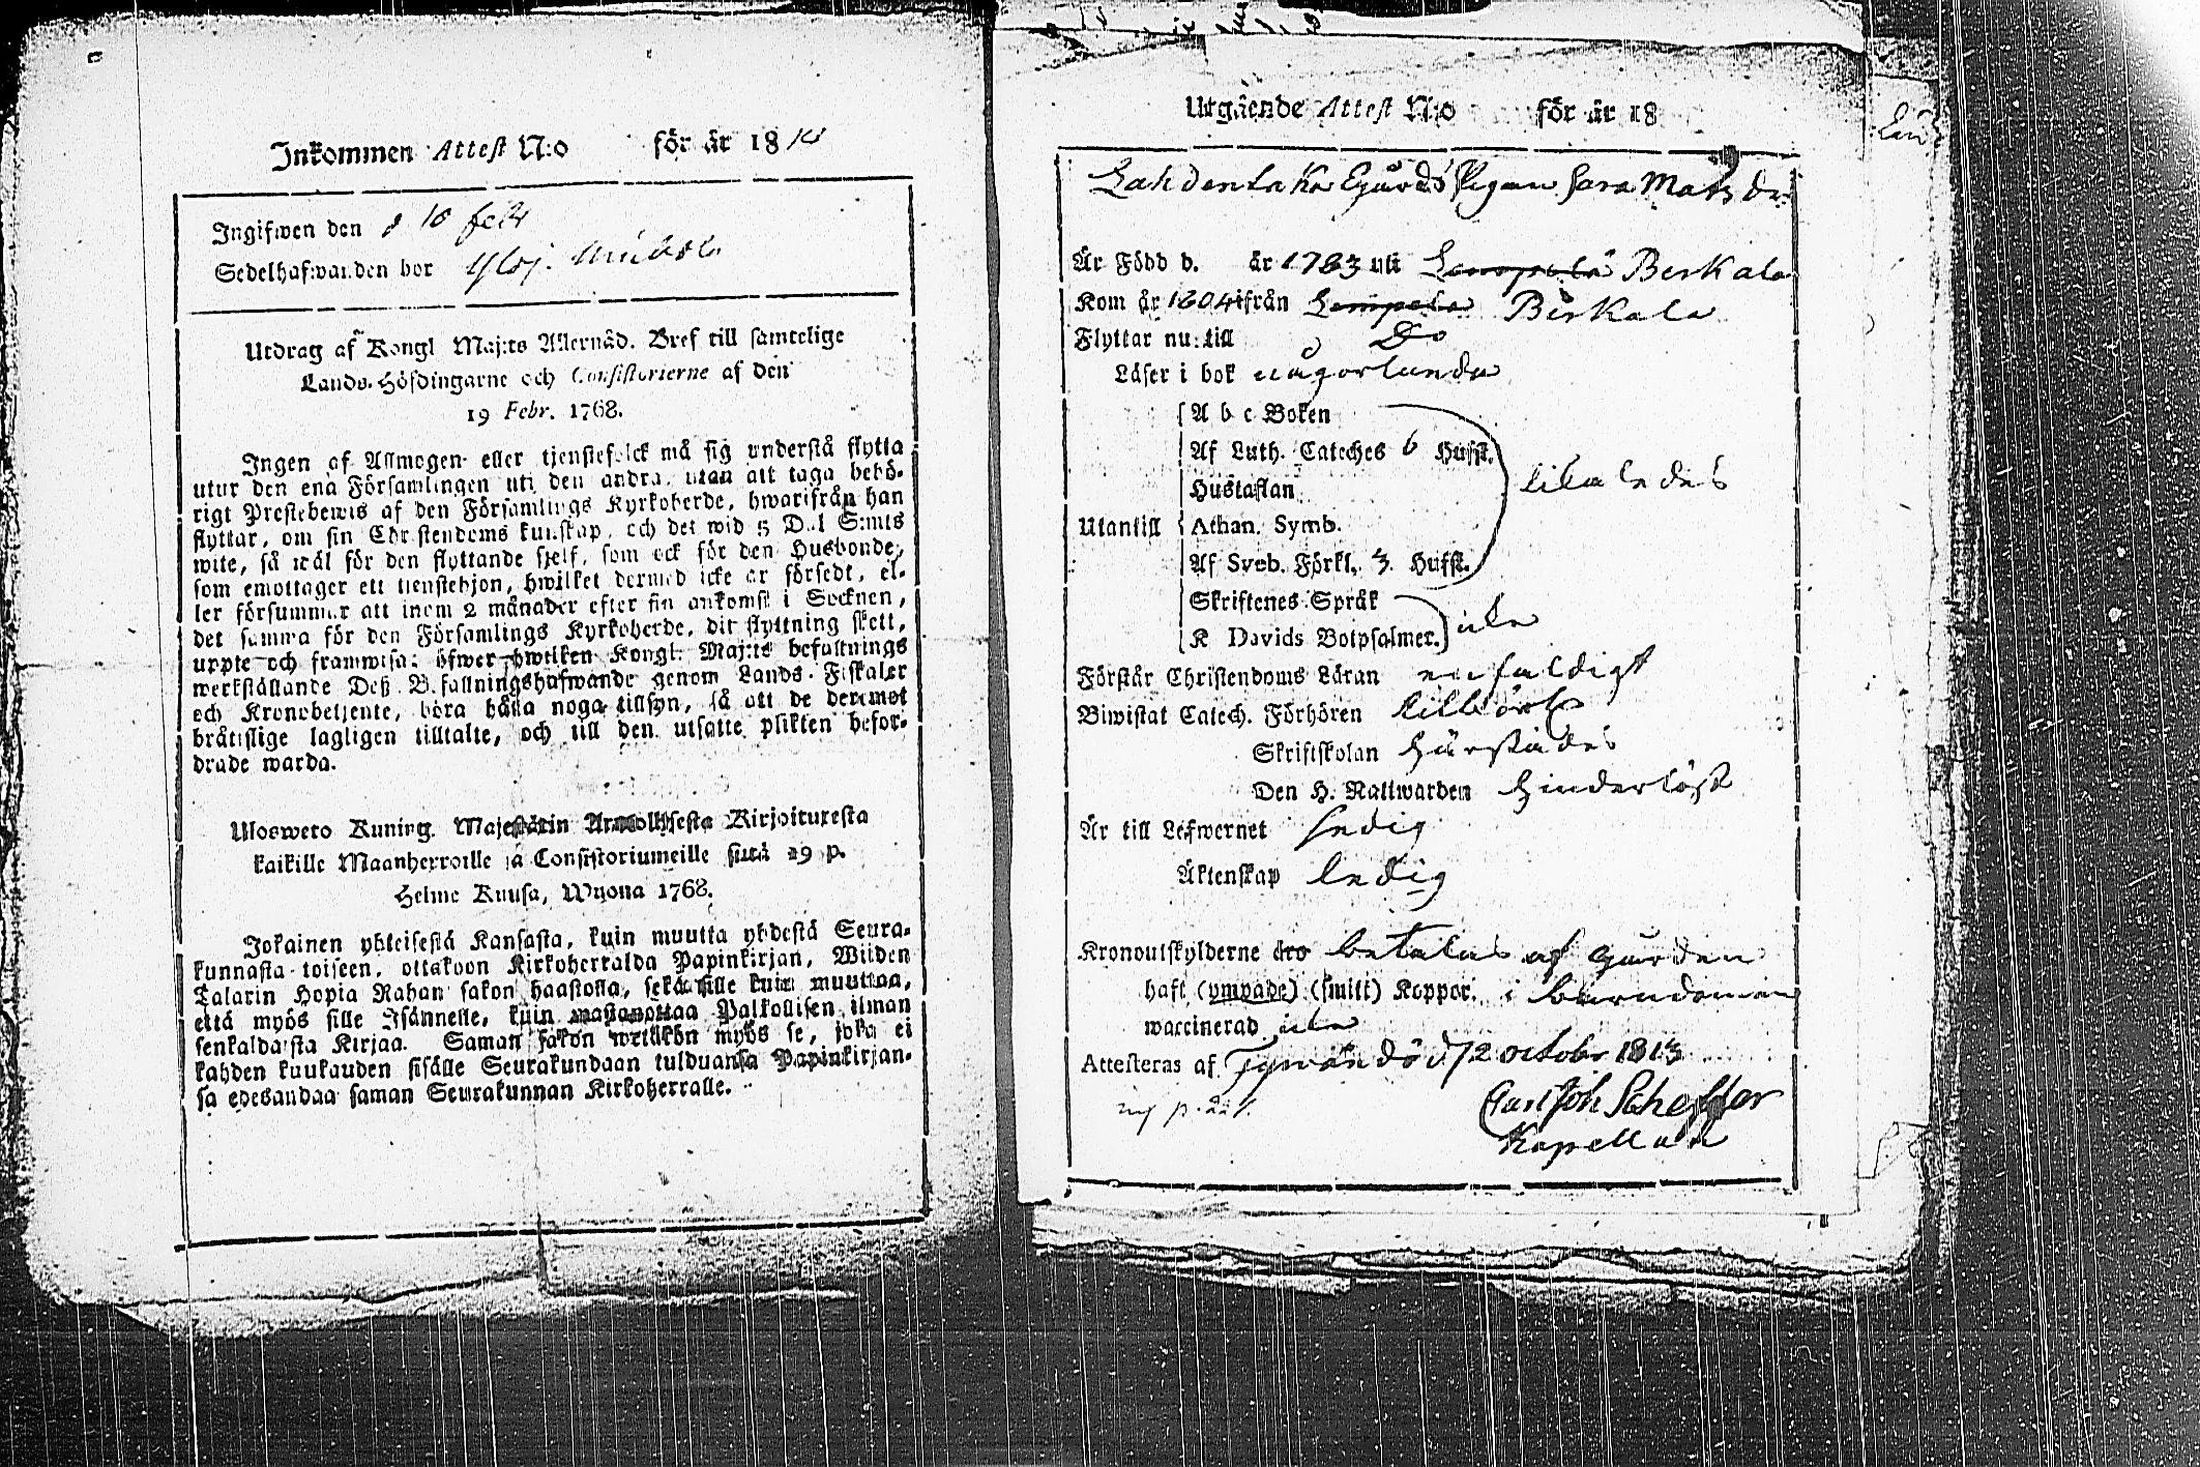 Inkommen Attest N:o för år 18
Ingifwen den 18 febr
Sedelhafwanden bor Yloj.
Utdrag af Kongl Maj:ts Allernåd. Bref till samtelige
Lands-Höfdingarne och Consistorierne af den
19 Febr. 1768.
Ingen af Allmogen eller tjenstefolck må sig understå flytta
utur den ena Församlingen uti den andra, utan att taga behö-
rigt Prestebewis af den Församlings Kyrkoherde, hwarifrån han
flyttar, om sin Christendoms kunskap, och det wid 5 Dal S:mts
wite, så wäl för den flyttande sjelf, som ock för den Husbonde,
som emottager ett tienstehjon, hwilket dermed icke är försedt, el-
ler försummar att inom 2 månader efter sin ankomst i Socknen,
det samma för den Församlings Kyrkoherde, dit flyttning skett,
uppte och framwisa: öfwer hwilken Kongl. Maj:ts befallnings
werkställande Deß Befallningshafwande genom Lands-Fiskaler
och Kronobetjente, böra hålla noga tillsyn, så att de deremot
bråttslige lagligen tilltalte, och till den utsatte plikten befor-
drade warda.
Ulosweto Kuning. Majestätin Armollisesta Kirjoituxesta
kaikille Maanherroille ja Consistoriumeille siitä 19 p.
Helme Kuusa, Wuona 1768.
Jokainen yhteisestä Kansasta, kuin muutta yhdestä Seura-
kunnasta toiseen, ottakoon Kirkoherralda Papinkirjan, Wiiden
Talarin Hopia Rahan sakon haastolla, sekä sille kuin muuttaa,
että myös sille Isännelle, kuin wastanottaa Palkollisen ilman
senkaldaista Kirjaa. Saman sakon wetäkön myös se, joka ei
kahden kuukauden sisälle Seurakundaan tulduansa Papinkirjan-
sa edesandaa saman Seurakunnan Kirkoherralle.
Utgående Attest N:o för år 18
Lahdenta Ka Egärds Pigan Sara Mats dr
Är Född d. år 1783 uti Lempelä Berkala
Kom år 1804 ifrån Lempela Birkala
Flyttar nu till Do
Läser i bok någorlunda
A b c Boken
Af Luth. Cateches 6 Hufst.
Hustaflan likaledes
Utantill Athan. Symb.
Af Sveb. Förkl. 3. Hufst.
Skriftenes Språk
K Davids Botpsalmer. icke
Förstår Christendoms Läran enfaldigt
Biwistat Catech. Förhören tillbörl
Skriftskolan härstädes
Den H. Nattwarden hinderlöst
Är till Lefwernet sedig
Äktenskap ledig
Kronoutskylderne äro betalas af gården
haft (ympade) (smitt) Koppor. i barndomen
waccinerad icke
Attesteras af Tyrwändö d 12 octobr 1813
Carl Joh Scheffer
Kapellan